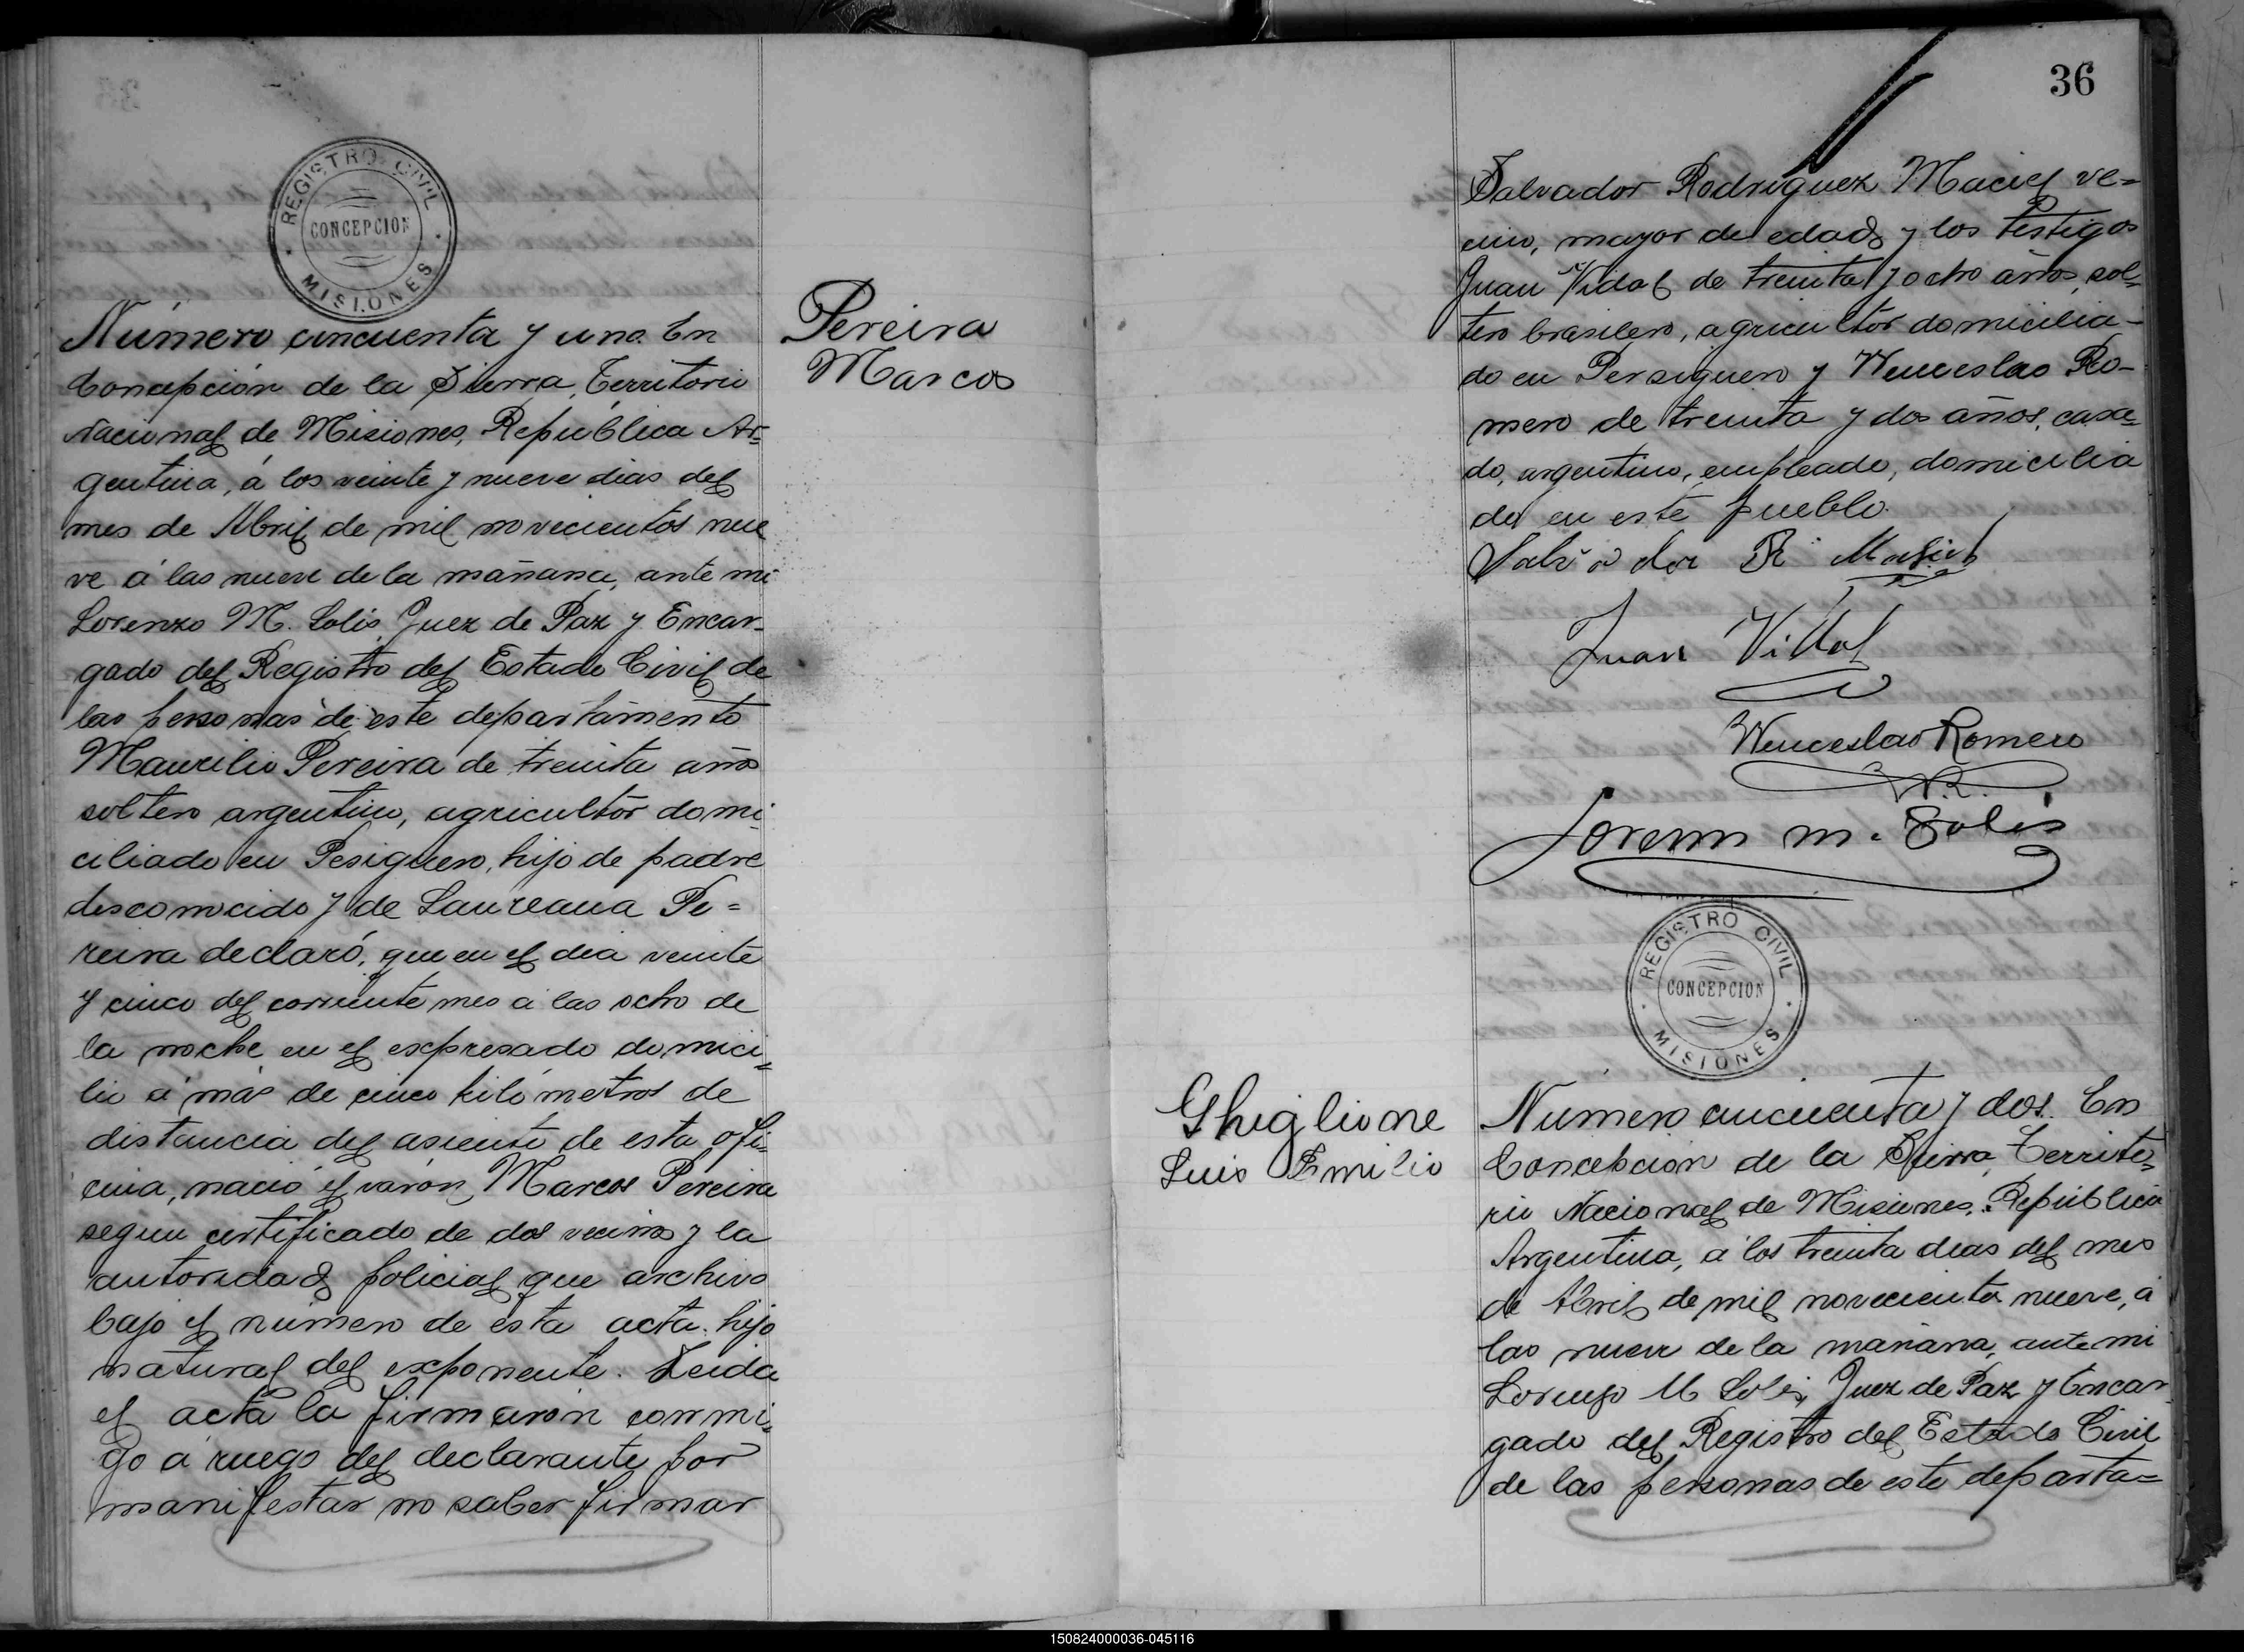 REGISTRO CIVIL
CONCEPCION
MISIONES
Número cincuenta y uno. En
Concepción de la Sierra, Territorio
Nacional de Misiones, República Ar=
gentina, á los veinte y nueve dias del
mes de Abril de mil novecientos nue
ve á las nueve de la mañana, ante mi
Lorenzo M. Solis Juez de Paz y Encar-
gado del Registro del Estado Civil de
las personas de este departamento
Maurilio Pereira de treinta años
soltero argentino, agricultor domi-
ciliado en Pesiguero, hijo de padre
desconocido y de Laureana Pe=
reira declaró, que en el dia veinte
y cinco del corriente mes á las ocho de
la noche en el expresado domici=
lio á más de cinco kilómetros de
distancia del asiento de esta ofi=
cina, nació el varón Marcos Pereira
segun certificado de dos vecinos y la
autoridad policial que archivo
bajo el número de esta acta. hijo
natural del exponente. Leida
el acta la firmaron conmi=
go á ruego del declarante por
manifestar no saber firmar
Pereira
Marcos
36
Salvador Rodriguez Maciel ve=
cino, mayor de edad y los testigos
Juan Vidal de treinta y ocho años, sol=
tero brasilero, agricultor domicilia-
do en Persiguero y Wenceslao Ro-
mero de treinta y dos años, casa=
do, argentino, empleado, domicilia
do en este pueblo.
Salvador R Masiel
Juan Vidal
Wenceslao Romero
W.R.
Lorenzo M. Solis
REGISTRO CIVIL
CONCEPCION
MISIONES
Ghiglione
Luis Emilio
Número cincuenta y dos. En
Concepción de la Sierra, Territo=
rio Nacional de Misiones, República
Argentina, á los treinta dias del mes
de Abril de mil novecientos nueve, á
las nueve de la mañana, ante mi
Lorenzo M Solis, Juez de Paz y Encar-
gado del Registro del Estado Civil
de las personas de este departa=
150824000036-045116